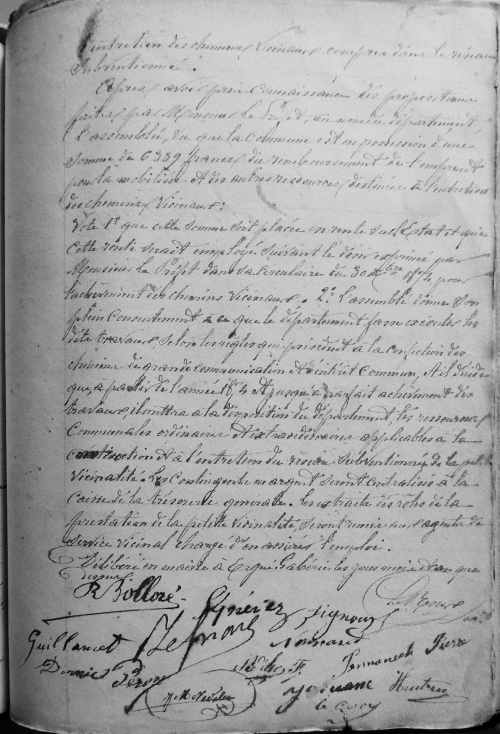 l'entretien des chemins Vicinaux compris dans le réseau
Subventionné.
Après avoir pris connaissance des propositions
faites par Monsieur le Préfet, au nom du département,
L'assemblée, vu que la Commune est en possession d'une
Somme de 6339 francs du remboursement de l'emprunt
pour la mobilisée. Et des autres ressources destinées à l'entretien
des chemins Vicinaux;
Vote 1º que cette Somme soit placée en rente sur l'Etat et que
cette rente serait employé suivant le désir exprimé par
Monsieur le Préfet dans la Circulaire du 30 1874 pour
l'achèvement des chemins Vicinaux. 2º L'assemblé donne Son
plein Consentement à ce que le département fasse exécuter les
dits travaux, Selon les règles qui président à la confection des
chemins de grande communication et d'intérêt Commun, et il décide
que, à partir de l'année 1874 et jusqu'à parfait achèvement des
travaux, il mettra à la disposition du département, les ressources
Communales ordinaires et extraordinaires applicables à la
construction et à l'entretien du réseau Subventionné de la petite
Vicinalité. Les Contingents en argent Seront Centralisés à la
Caisse de la trésorerie générale. Les extraits des rôles de la
prestation de la petite Vicinalité, Seront remis aux agents du
Service Vicinal chargé d'en assurer l'emploi.
Délibéré en mairie à Ergué-Gabéric les jours mois et an que
dessus
R Bolloré
Guillamet
Dennis
Péron